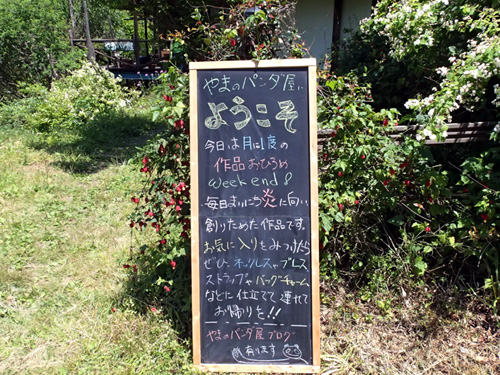 やまのパンダ屋い
ようこそ
今日は月に1度の
作品おひろめ
Week end!
毎日まいにち炎に向い
創りためた作品です。
お気に入りをみつけたら
ぜひ、ネックレスやブレス
ストラップやバッグチャーム、
などに仕立てて連れて
お帰りを!!
やまのパンダ屋ブログ
有ります